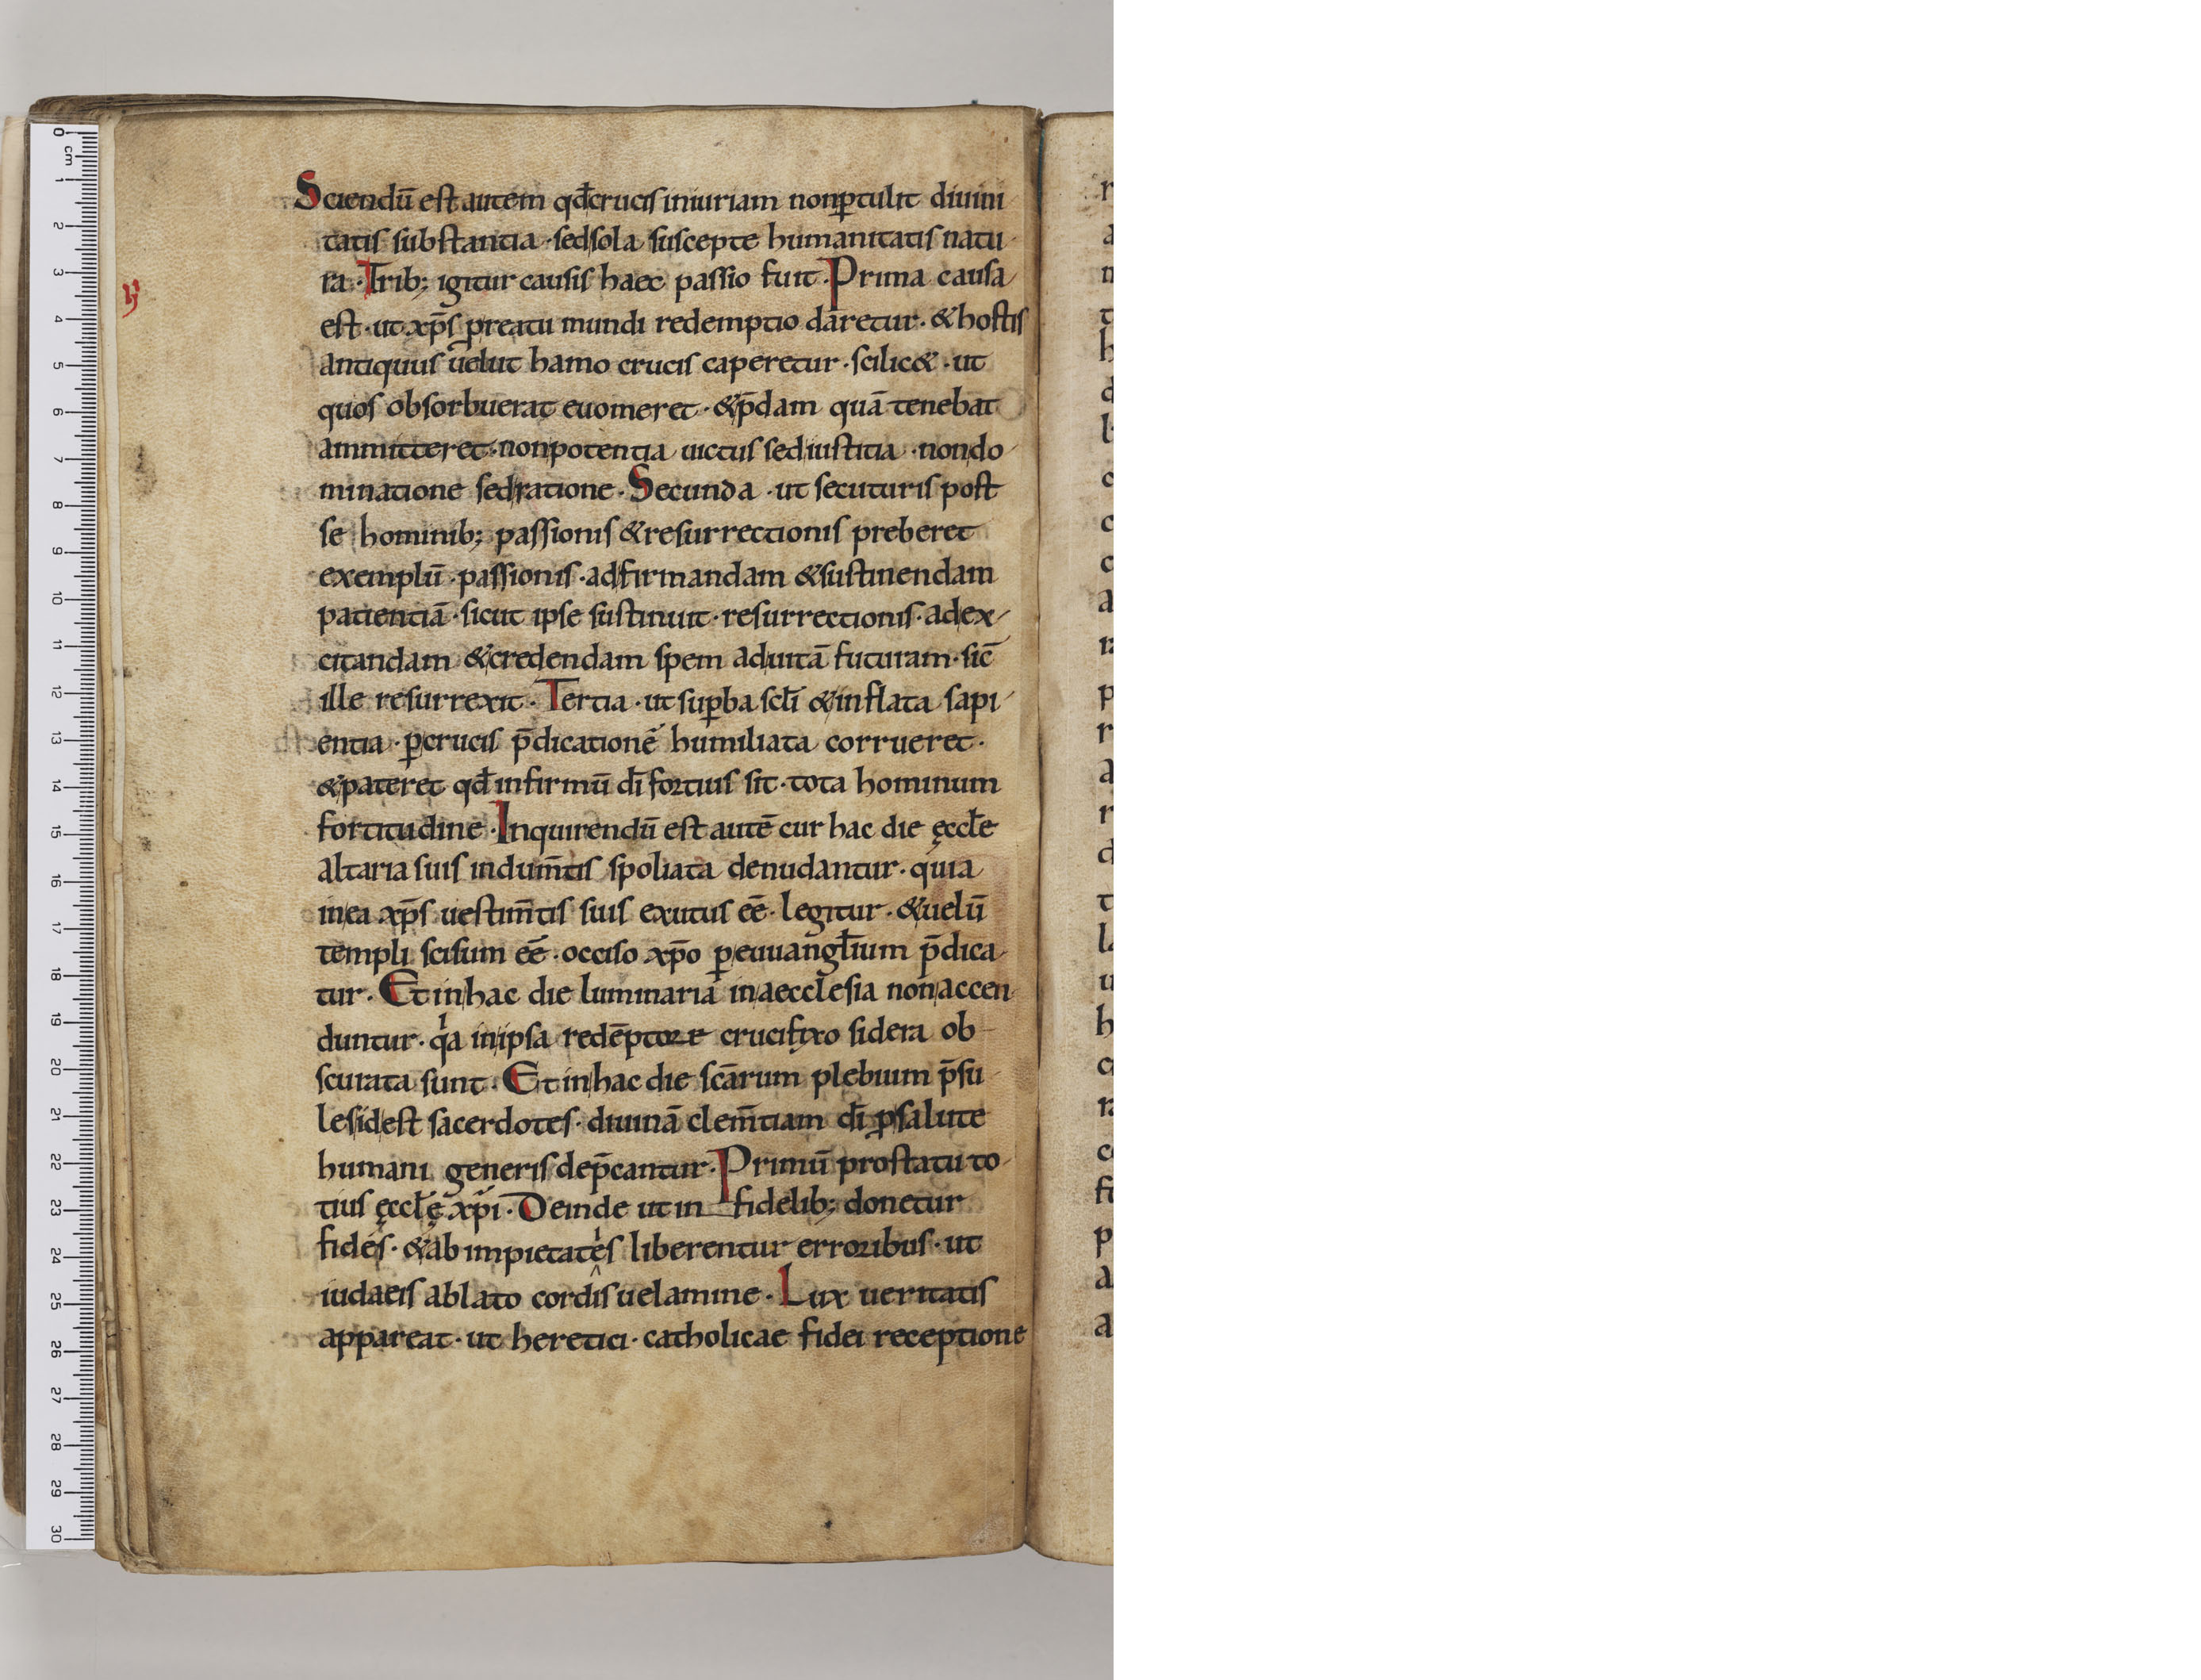 Sciendū est autem qđ crucis iniuriam non ꝑtulit diuini
tatis substantia · sed sola suscepte humanitatis natu
ra · Trib; igitur causis haec passio fuit · Prima causa
est · ut xp̄s ꝓ reatu mundi redemptio daretur · & hostis
antiquus uelut hamo crucis caperetur · scilic& · ut
quos obsorbuerat euomeret · & p̄dam quā tenebat
ammitteret · non potentia uictus sed iustitia · non do
minatione sed ratione · Secunda · ut secuturis post
se hominib; passionis & resurrectionis preberet
exemplū · passionis · ad firmandam & sustinendam
patientiā · sicut ipse sustinuit · resurrectionis · ad ex
citandam & credendam spem ad uitā futuram · sic̄
ille resurrexit · Tertia · ut suꝑba scłi & inflata sapi
entia · ꝑ crucis p̄dicationē humiliata corrueret ·
& pateret qđ infirmū dī fortius sit · tota hominum
fortitudine · Inquirendū est autē cur hac die ęccłe
altaria suis indum̄tis spoliata denudantur · quia
in ea xp̄s uestim̄tis suis exutus eē · legitur · & uelū
templi scisum eē · occiso xp̄o ꝑ euuangłium p̄dica
tur · Et in hac die luminaria in aecclesia non accen
duntur · qͥa in ipsa redēptore crucifixo sidera ob
scurata sunt · Et in hac die scārum plebium p̄su
les id est sacerdotes · diuinā clem̄tiam dī ꝓ salute
humani generis dep̄cantur · Primū pro statu to
tius ęccłę xp̄i · Deinde ut in fidelib; donetur
fides · & ab impietatęs liberentur erroribus · ut
iudaeis ablato cordis uelamine · Lux ueritatis
appareat · ut heretici · catholicae fidei receptione
0 cm 1 2 3 4 5 6 7 8 9 10 11 12 13 14 15 16 17 18 19 20 21 22 23 24 25 26 27 28 29 30